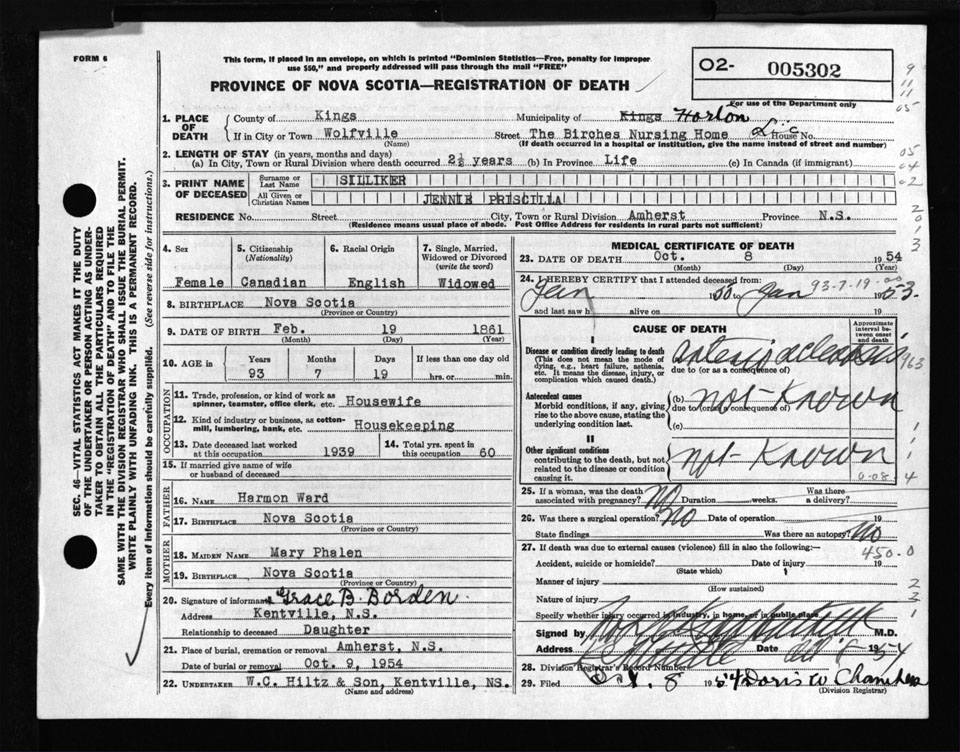 FORM 6
This form, if placed in an envelope, on which is printed "Dominion Statistics—Free, penalty for improper
use $50," and properly addressed will pass through the mail "FREE"
PROVINCE OF NOVA SCOTIA—REGISTRATION OF DEATH
O2- 005302
For use of the Department only
9
11
11
05
1. PLACE OF DEATH
County of Kings Municipality of Kings Horton
If in City or Town Wolfville Street The Birches Nursing Home Lic House No.
(Name) (If death occurred in a hospital or institution, give the name instead of street and number)
2. LENGTH OF STAY (in years, months and days)
(a) In City, Town or Rural Division where death occurred 2½ years (b) In Province Life (c) In Canada (if immigrant)
05
04
02
3. PRINT NAME OF DECEASED
Surname or Last Name SILLIKER
All Given or Christian Names JENNIE PRISCILLA
RESIDENCE No. Street City, Town or Rural Division Amherst Province N.S.
(Residence means usual place of abode. Post Office Address for residents in rural parts not sufficient)
2
0
1
3
4. Sex
Female
5. Citizenship (Nationality)
Canadian
6. Racial Origin
English
7. Single, Married, Widowed or Divorced (write the word)
Widowed
8. BIRTHPLACE Nova Scotia
(Province or Country)
9. DATE OF BIRTH Feb. 19 1861
(Month) (Day) (Year)
10. AGE in Years Months Days If less than one day old
93 7 19 hrs. or min.
OCCUPATION
11. Trade, profession, or kind of work as
spinner, teamster, office clerk, etc. Housewife
12. Kind of industry or business, as cotton-
mill, lumbering, bank, etc. Housekeeping
13. Date deceased last worked
at this occupation 1939
14. Total yrs. spent in
this occupation 60
15. If married give name of wife
or husband of deceased
FATHER
16. NAME Harmon Ward
17. BIRTHPLACE Nova Scotia
(Province or Country)
MOTHER
18. MAIDEN NAME Mary Phalen
19. BIRTHPLACE Nova Scotia
(Province or Country)
20. Signature of informant Grace B. Borden
Address Kentville, N.S.
Relationship to deceased Daughter
21. Place of burial, cremation or removal Amherst, N.S.
Date of burial or removal Oct. 9, 1954
22. UNDERTAKER W.C. Hiltz & Son, Kentville, NS.
(Name and address)
MEDICAL CERTIFICATE OF DEATH
23. DATE OF DEATH Oct. 8 1954
(Month) (Day) (Year)
24. I HEREBY CERTIFY that I attended deceased from:
93-7-19-00
Jan 1950 Jan 1953.
and last saw h alive on 19
CAUSE OF DEATH
Approximate interval between onset and death
I
Disease or condition directly leading to death
(This does not mean the mode of
dying, e.g., heart failure, asthenia,
etc. It means the disease, injury, or
complication which caused death.)
due to (or as a consequence of)
963
Antecedent causes
Morbid conditions, if any, giving
rise to the above cause, stating the
underlying condition last.
(b) not Known
due to (or as a consequence of)
(c)
II
Other significant conditions
contributing to the death, but not
related to the disease or condition
causing it.
not Known
0-08 4
25. If a woman, was the death
associated with pregnancy? No Duration weeks. Was there a delivery?
26. Was there a surgical operation? No Date of operation 19
State findings Was there an autopsy? No
27. If death was due to external causes (violence) fill in also the following:—
450-0
Accident, suicide or homicide? Date of injury 19
(State which)
Manner of injury
(How sustained)
2
Nature of injury
2
Specify whether injury occurred in industry, in home, or in public place
1
Signed by M.D.
Address Date Oct 1954
28. Division Registrar's Record Number
29. Filed Oct. 8 1954 Doris W Chambers
(Division Registrar)
SEC. 46—VITAL STATISTICS ACT MAKES IT THE DUTY
OF THE UNDERTAKER OR PERSON ACTING AS UNDER-
TAKER TO OBTAIN ALL THE PARTICULARS REQUIRED
IN THE "REGISTRATION OF DEATH" AND TO FILE THE
SAME WITH THE DIVISION REGISTRAR WHO SHALL ISSUE THE BURIAL PERMIT.
WRITE PLAINLY WITH UNFADING INK. THIS IS A PERMANENT RECORD.
Every item of information should be carefully supplied. (See reverse side for instructions.)